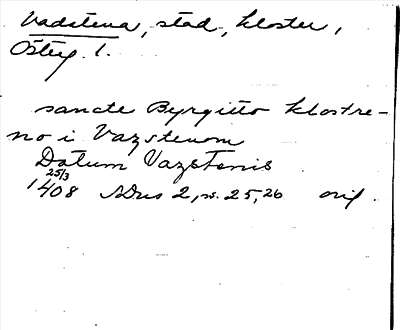 Vadstena, stad, kloster,
Österg. l.
sancte Byrgitto klostre-
no i Vazstenom
Datum Vazstenis
25/3
1408 SDns 2, s. 25, 26 orig.